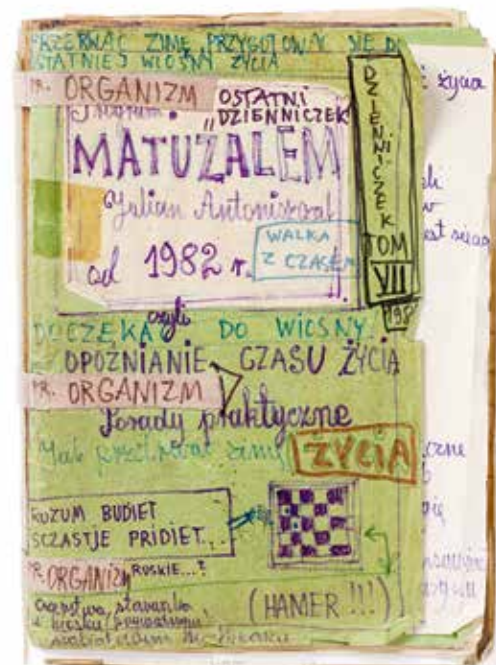 PRZERWAĆ ZIMĘ PRZYGOTOWAĆ SIĘ DO
OSTATNIEJ WIOSNY ŻYCIA
PR. ORGANIZM
OSTATNI
"DZIENNICZEK
Program
MATUZALEM
Julian Antoniszczak
WALKA
Z CZASEM
od 1982 r.
DZIENNICZEK
TOM
VII
198
czyli
DOCZEKAĆ DO WIOSNY
OPOZNIANIE CZASU ŻYCIA
PR. ORGANIZM
Porady praktyczne
Jak przetrwać zimę ŻYCIA
ROZUM BUDIET
SCZASTJE PRIDIET...
PR. ORGANIZM RUSKIE...?
(HAMER !!!)
życia